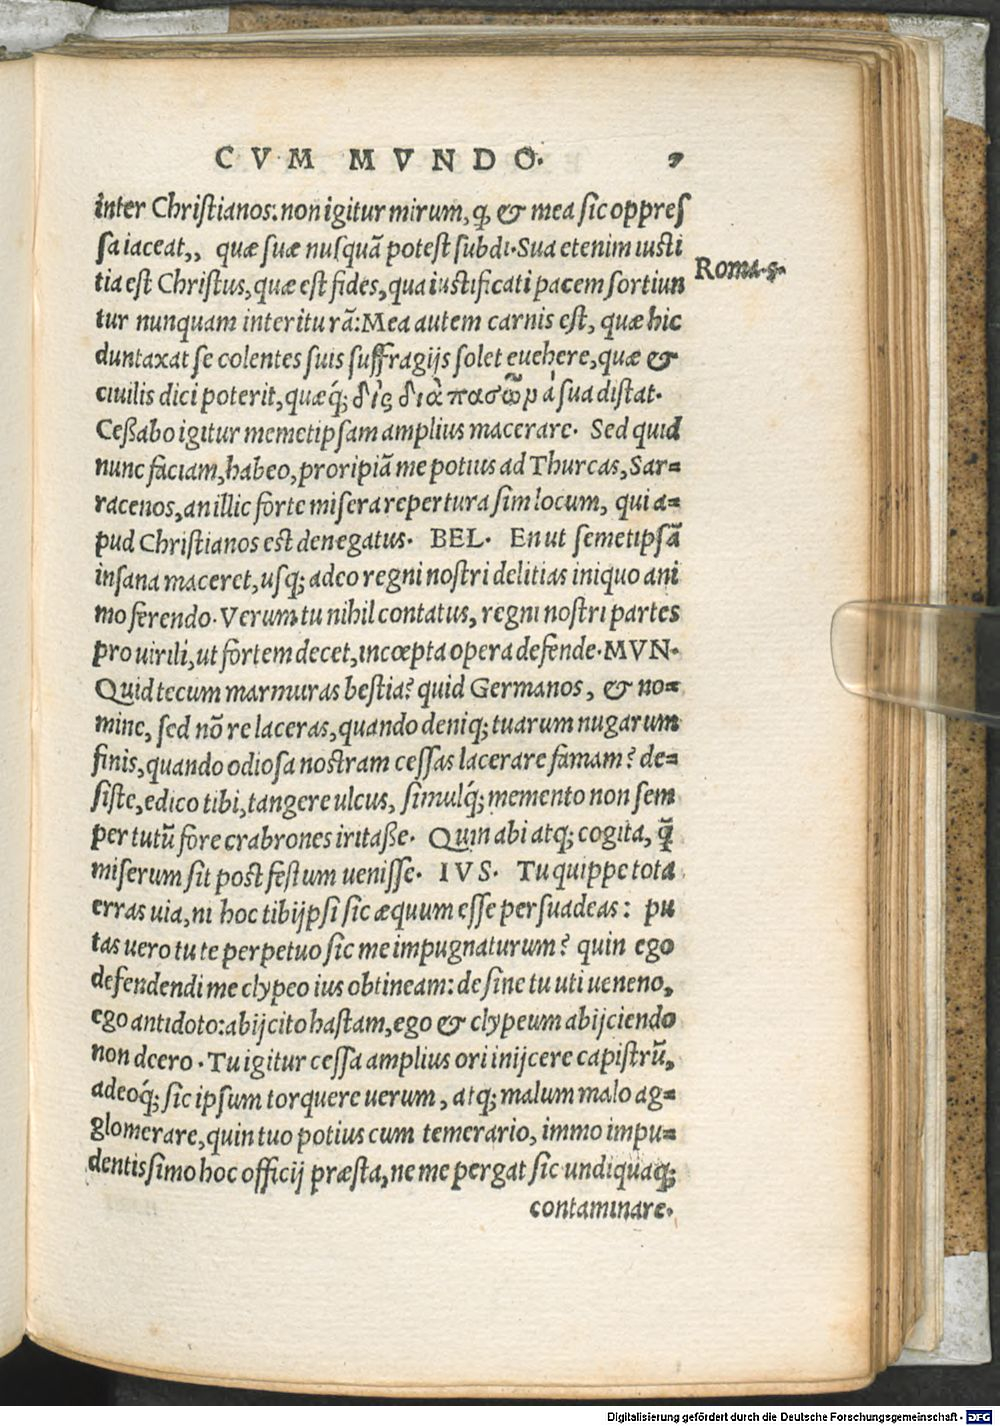 CVM MVNDO. 9
inter Christianos: non igitur mirum, ꝙ, & mea sic oppres
sa iaceat,, quæ suæ nusquã potest subdi. Sua etenim iusti
tia est Christus, quæ est fides, qua iustificati pacem sortiun
Roma. 5.
tur nunquam interiturã: Mea autem carnis est, quæ hic
duntaxat se colentes suis suffragijs solet euehere, quæ &
ciuilis dici poterit, quæq́; δὶς διὰ πασῶν à sua distat.
Ceßabo igitur memetipsam amplius macerare. Sed quid
nunc faciam, habeo, proripiã me potius ad Thurcas, Sar=
racenos, an illic forte misera repertura sim locum, qui a=
pud Christianos est denegatus. BEL. En ut semetipsã
insana maceret, usq; adeo regni nostri delitias iniquo ani
mo ferendo. Verum tu nihil contatus, regni nostri partes
pro uirili, ut fortem decet, incœpta opera defende. MVN.
Quid tecum marmuras bestia? quid Germanos, & no=
mine, sed nõ re laceras, quando deniq; tuarum nugarum
finis, quando odiosa nostram cessas lacerare famam? de=
siste, edico tibi, tangere ulcus, simulq́; memento non sem
per tutũ fore crabrones iritaße. Quin abi atq; cogita, q̃
miserum sit post festum uenisse. IVS. Tu quippe tota
erras uia, ni hoc tibijpsi sic æquum esse persuadeas: pu
tas uero tu te perpetuo sic me impugnaturum? quin ego
defendendi me clypeo ius obtineam: desine tu uti ueneno,
ego antidoto: abijcito hastam, ego & clypeum abijciendo
non dcero. Tu igitur cessa amplius ori inijcere capistrũ,
adeoq́; sic ipsum torquere uerum, atq; malum malo ag=
glomerare, quin tuo potius cum temerario, immo impu=
dentissimo hoc officij præsta, ne me pergat sic undiquaq;
contaminare.
Digitalisierung gefördert durch die Deutsche Forschungsgemeinschaft - DFG